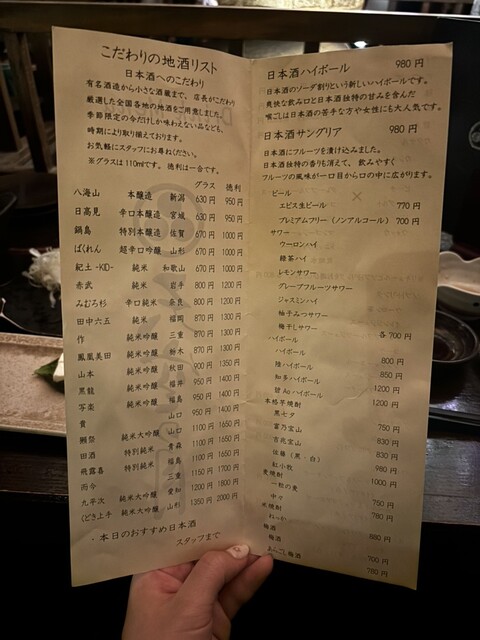 こだわりの地酒リスト
日本酒へのこだわり
有名酒造から小さな酒蔵まで、店長がこだわり
厳選した全国各地の地酒をご用意しました。
季節限定の今だけしか味わえない品なども、
時期により取り揃えております。
お気軽にスタッフにお尋ねください。
※グラスは110mlです。徳利は一合です。
グラス 徳利
八海山 本醸造 新潟 630円 950円
日高見 辛口本醸造 宮城 630円 950円
鍋島 特別本醸造 佐賀 670円 1000円
ばくれん 超辛口吟醸 山形 670円 1000円
紀土-KID- 純米 和歌山 670円 1000円
赤武 純米 岩手 800円 1200円
みむろ杉 辛口純米 奈良 800円 1200円
田中六五 純米 福岡 870円 1300円
作 純米吟醸 三重 870円 1300円
鳳凰美田 純米吟醸 栃木 870円 1300円
山本 純米吟醸 秋田 900円 1350円
黒龍 純米吟醸 福井 950円 1400円
写楽 純米吟醸 福島 950円 1400円
貴 山口 950円 1400円
獺祭 純米大吟醸 山口 1100円 1650円
田酒 特別純米 青森 1100円 1650円
飛露喜 特別純米 福島 1100円 1650円
而今 三重 1150円 1700円
九平次 純米大吟醸 愛知 1200円 1800円
くどき上手 純米大吟醸 山形 1350円 2000円
・本日のおすすめ日本酒
スタッフまで
日本酒ハイボール 980円
日本酒のソーダ割りという新しいハイボールです。
爽快な飲み口と日本酒独特の甘みを含んだ
喉ごしは日本酒の苦手な方や女性にも大人気です。
日本酒サングリア 980円
日本酒にフルーツを漬け込みました。
日本酒独特の香りも消えて、飲みやすく
フルーツの風味が一口目から口の中に広がります。
ビール
エビス生ビール 770円
プレミアムフリー(ノンアルコール) 700円
サワー
ウーロンハイ
緑茶ハイ
レモンサワー
グレープフルーツサワー
ジャスミンハイ
柚子みつサワー
梅干しサワー
各700円
ハイボール
ハイボール 800円
陸ハイボール 850円
知多ハイボール 1200円
碧Aoハイボール 1200円
本格芋焼酎
黒七夕 750円
富乃宝山 830円
吉兆宝山 830円
佐藤(黒・白) 980円
紅小牧 1000円
麦焼酎
一粒の麦 750円
中々 780円
米焼酎
880円
梅酒
梅酒 700円
あらごし梅酒 780円